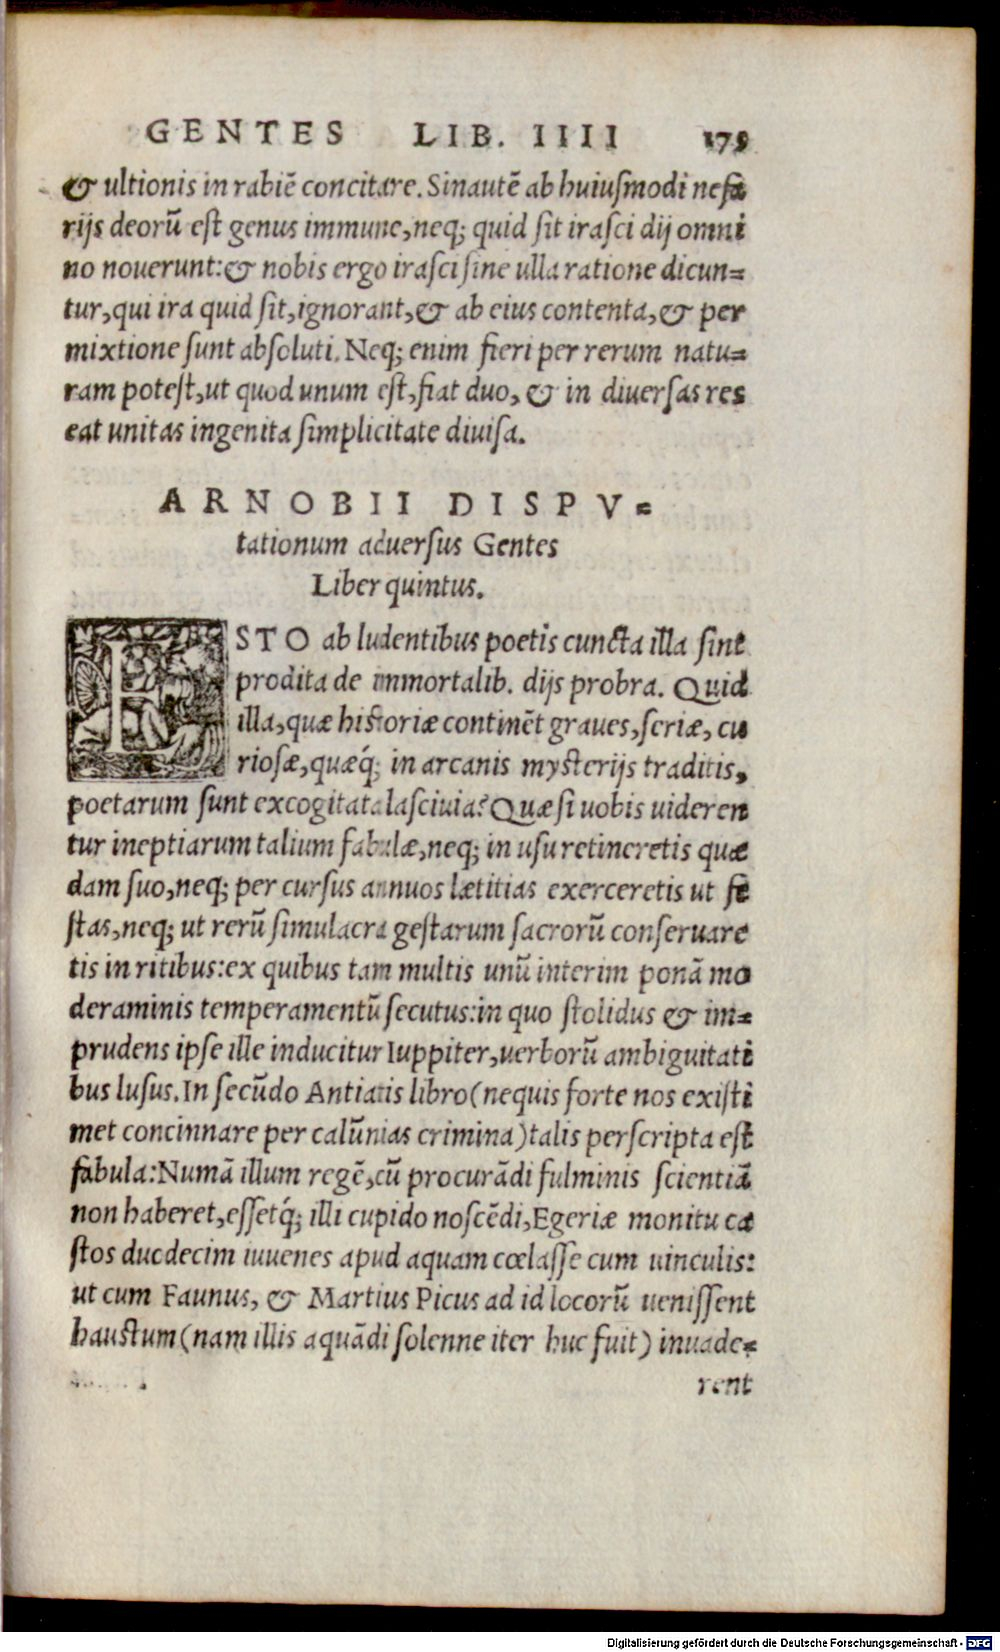 GENTES LIB. IIII 175
& ultionis in rabiē concitare. Sinautē ab huiuſmodi nefa
rijs deorū eſt genus immune, neq; quid ſit iraſci dij omni
no nouerunt: & nobis ergo iraſci ſine ulla ratione dicun=
tur, qui ira quid ſit, ignorant, & ab eius contenta, & per
mixtione ſunt abſoluti. Neq; enim fieri per rerum natu=
ram poteſt, ut quod unum eſt, fiat duo, & in diuerſas res
eat unitas ingenita ſimplicitate diuiſa.
ARNOBII DISPV=
tationum aduerſus Gentes
Liber quintus.
ESTO ab ludentibus poetis cuncta illa ſint
prodita de immortalib. dijs probra. Quid
illa, quæ hiſtoriæ continēt graues, ſeriæ, cu
rioſæ, quæq́; in arcanis myſterijs traditis,
poetarum ſunt excogitata laſciuia? Quæ ſi uobis uideren
tur ineptiarum talium fabulæ, neq; in uſu retineretis quæ
dam ſuo, neq; per curſus annuos lætitias exerceretis ut fe
ſtas, neq; ut rerū ſimulacra geſtarum ſacrorū conſeruare
tis in ritibus: ex quibus tam multis unū interim ponā mo
deraminis temperamentū ſecutus: in quo ſtolidus & im=
prudens ipſe ille inducitur Iuppiter, uerborū ambiguitati
bus luſus. In ſecūdo Antiatis libro (nequis forte nos exiſti
met concinnare per calūnias crimina) talis perſcripta eſt
fabula: Numā illum regē, cū procurādi fulminis ſcientiā
non haberet, eſſetq́; illi cupido noſcēdi, Egeriæ monitu ca
ſtos duodecim iuuenes apud aquam cœlaſſe cum uinculis:
ut cum Faunus, & Martius Picus ad id locorū ueniſſent
hauſtum (nam illis aquādi ſolenne iter huc fuit) inuade=
rent
Digitalisierung gefördert durch die Deutsche Forschungsgemeinschaft - DFG